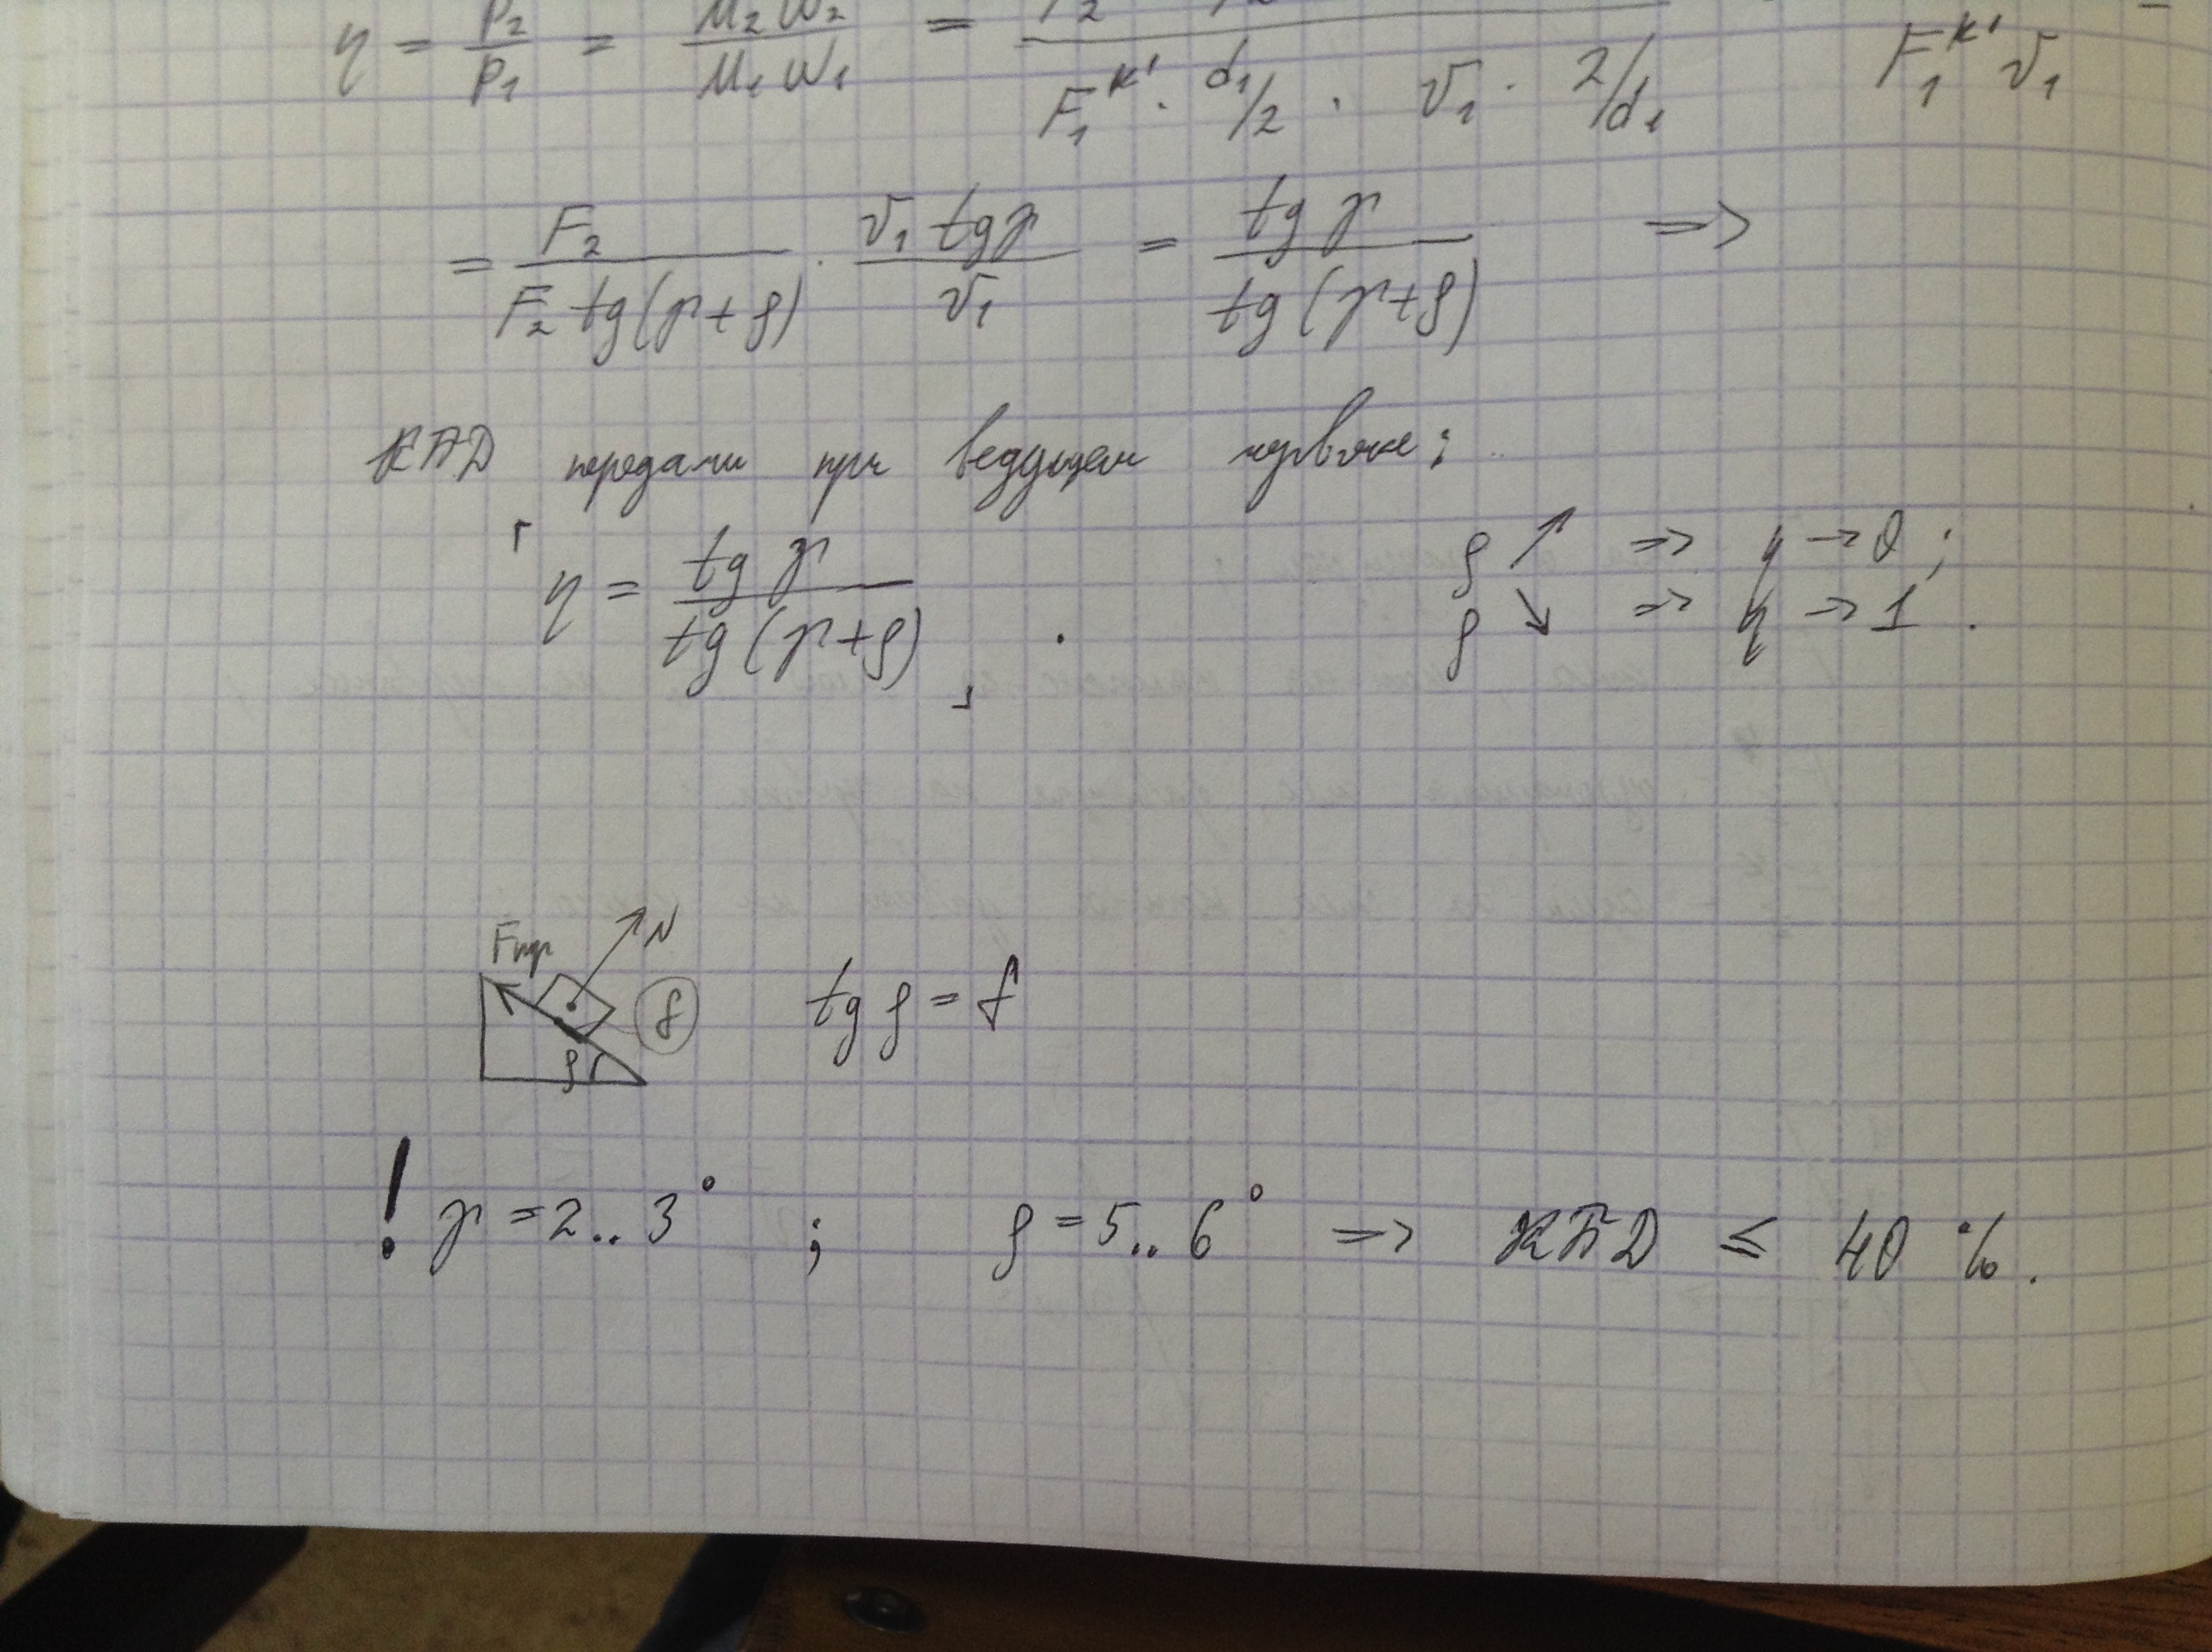 η = P₂/P₁ = M₂ω₂/M₁ω₁ = /(F₁ᵏ' · d₁/2 · v₁ · 2/d₁) F₁ᵏ' v₁
= F₂/(F₂ tg(γ+ρ)) · v₁ tgγ/v₁ = tg γ/tg(γ+ρ) =>
КПД передачи при ведущем червяке:
η = tg γ/tg(γ+ρ) .
ρ ↗ => η → 0 ;
ρ ↘ => η → 1 .
Fтр N f ρ
tg ρ = f
! γ = 2..3° ; ρ = 5..6° => КПД ≤ 40 %.